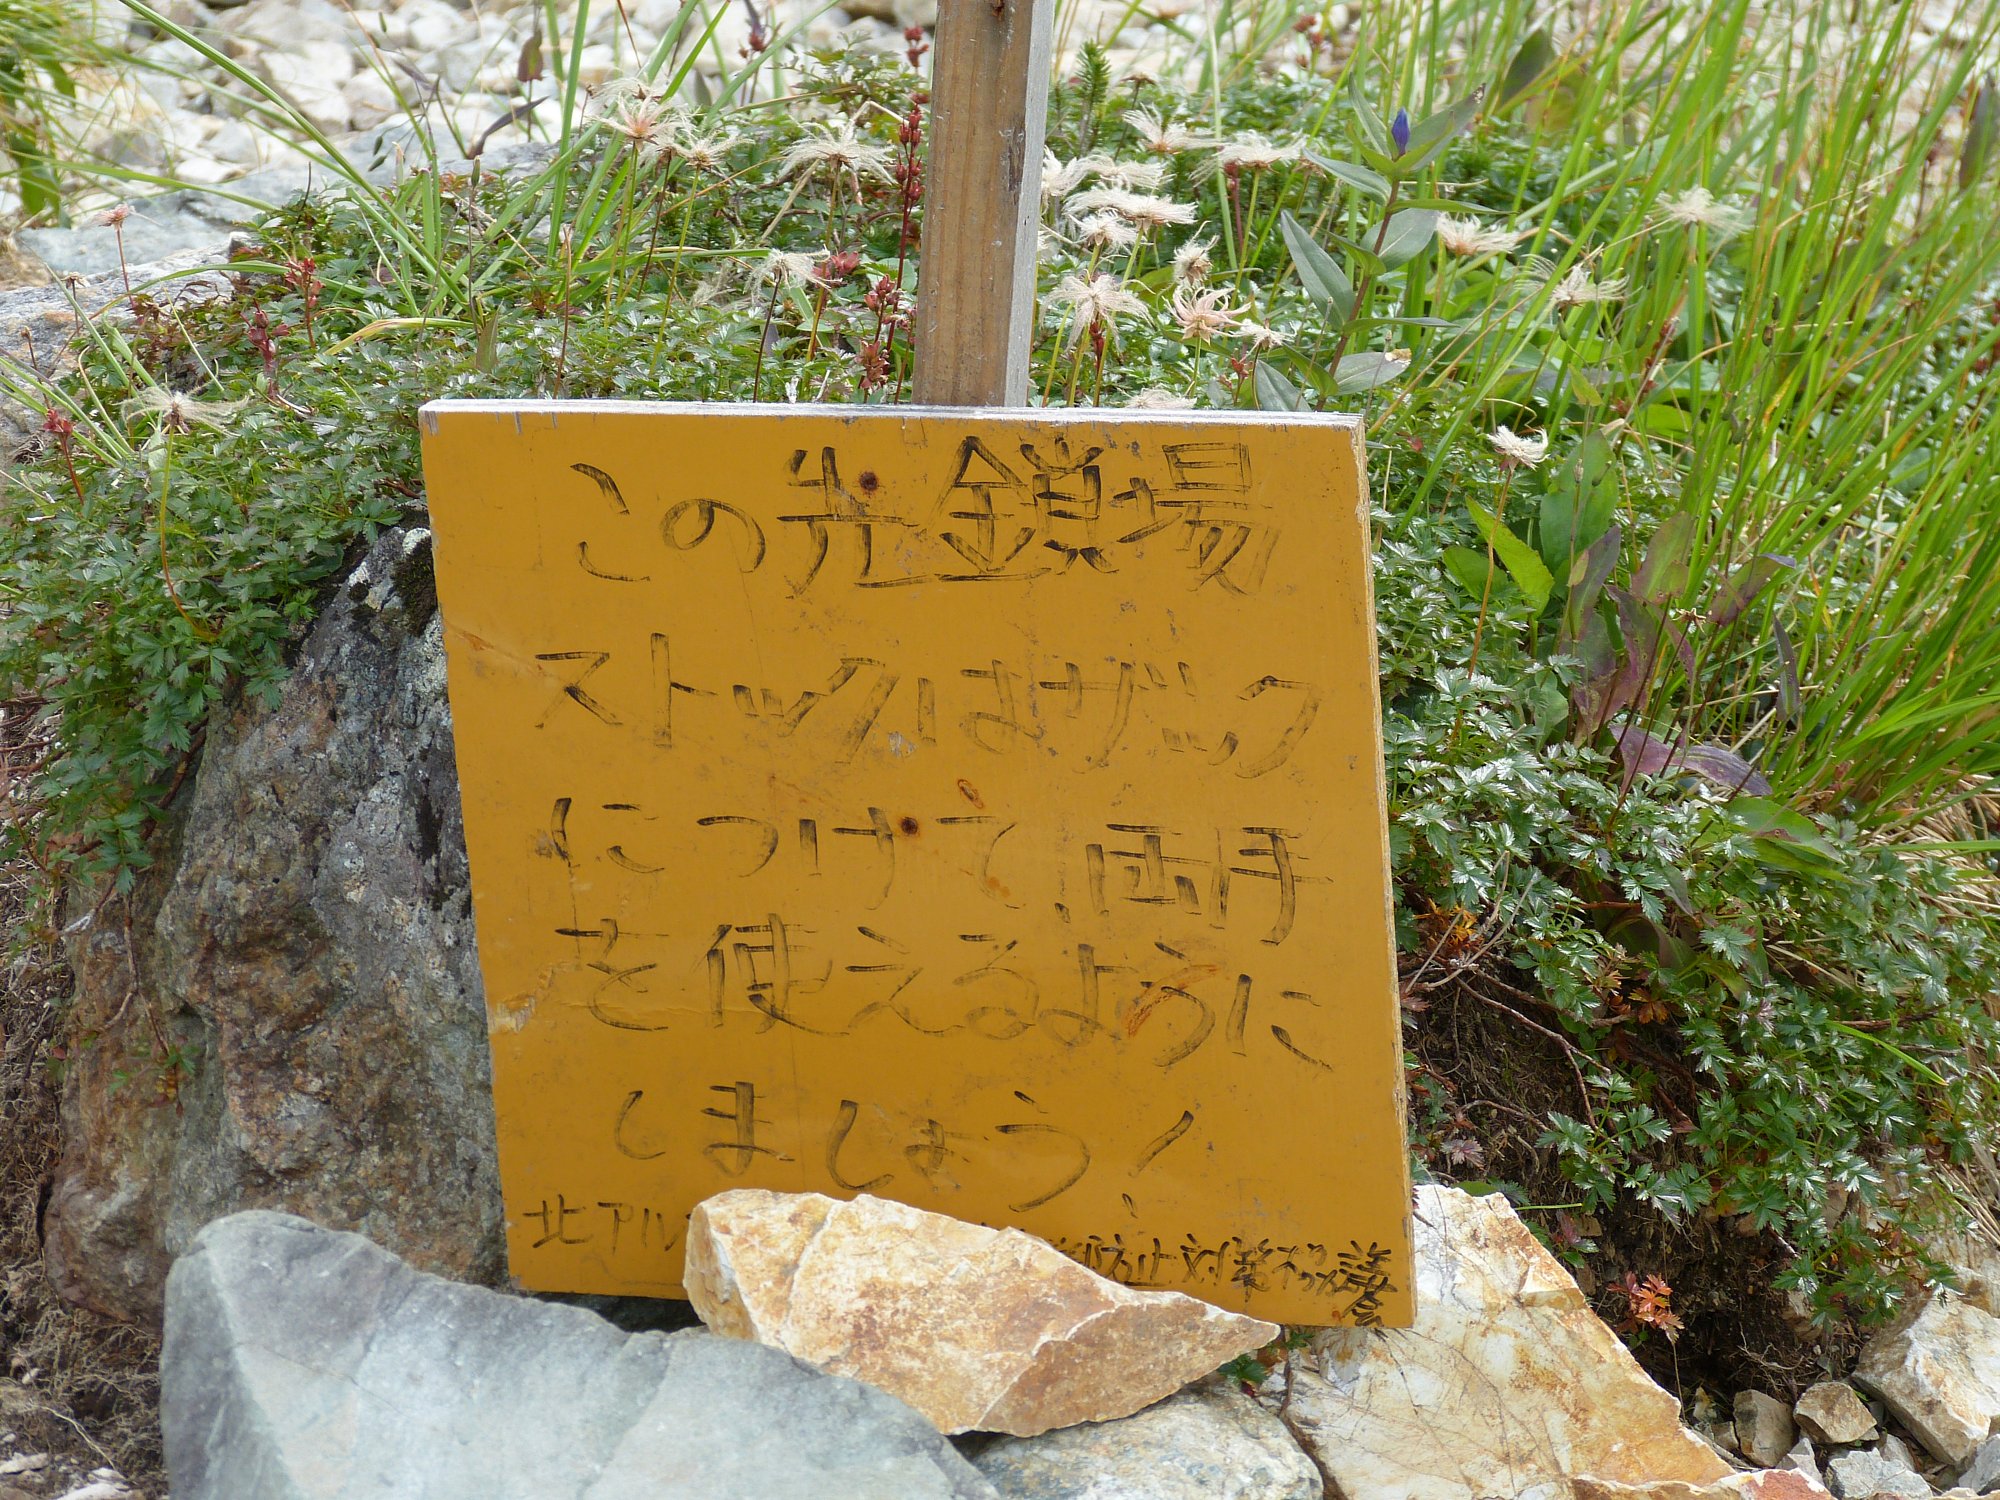 この先鎖場
ストックはザック
につけて、両手
を使えるように
しましょう!
北アル 防止対策協議会